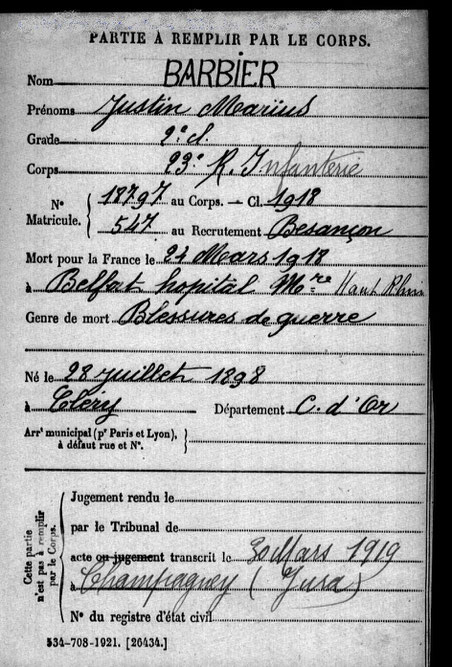 PARTIE À REMPLIR PAR LE CORPS.
Nom BARBIER
Prénoms Justin Marius
Grade 2e cl.
Corps 23e R. Infanterie
N° Matricule. 18797 au Corps. — Cl. 1918
547 au Recrutement Besançon
Mort pour la France le 21 Mars 1918
à Belfort hopital Mre Haut Rhin
Genre de mort Blessures de guerre
Né le 28 juillet 1898
à Cléry Département C. d'Or
Arrt municipal (pr Paris et Lyon),
à défaut rue et N°.
Cette partie n'est pas à remplir par le Corps.
Jugement rendu le
par le Tribunal de
acte ou jugement transcrit le 30 Mars 1919
à Champagney (Jura)
N° du registre d'état civil
534-708-1921. [26434.]